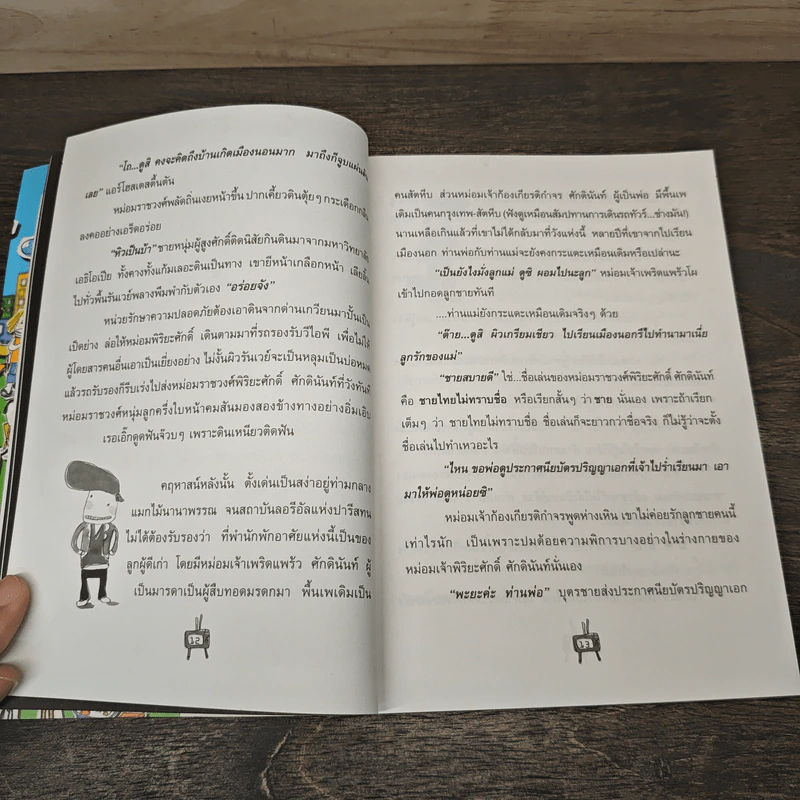 “โถ...ดูสิ คงจะคิดถึงบ้านเกิดเมืองนอนมาก มาถึงก็จูบแผ่นดิน
เลย” แอร์โฮสเตสตื้นตัน
หม่อมราชวงศ์พลัดถิ่นเงยหน้าขึ้น ปากเคี้ยวดินตุ้ยๆ กระเดือกกลืน
ลงคออย่างเอร็ดอร่อย
“หิวเป็นบ้า” ชายหนุ่มผู้สูงศักดิ์ติดนิสัยกินดินมาจากมหาวิทยาลัย
เอธิโอเปีย ทั้งคางทั้งแก้มเลอะดินเป็นทาง เขายีหน้าเกลือกหน้า เลียลิ้น
ไปทั่วพื้นรันเวย์พลางพึมพำกับตัวเอง “อร่อยจัง”
หน่วยรักษาความปลอดภัยต้องเอาดินจากด่านเกวียนมาปั้นเป็น
เป็ดย่าง ล่อให้หม่อมพิริยะศักดิ์ เดินตามมาที่รถรองรับวีไอพี เพื่อไม่ให้
ผู้โดยสารคนอื่นเอาเป็นเยี่ยงอย่าง ไม่งั้นผิวรันเวย์จะเป็นหลุมเป็นบ่อหมด
แล้วรถรับรองก็รีบเร่งไปส่งหม่อมราชวงศ์พิริยะศักดิ์ ศักดินันท์ที่วังทันที
หม่อมราชวงศ์หนุ่มลูกครึ่งใบหน้าคมสันมองสองข้างทางอย่างอิ่มเอิบ
เรอเอิ๊กดูดฟันจ๊วบๆ เพราะดินเหนียวติดฟัน
คฤหาสน์หลังนั้น ตั้งเด่นเป็นสง่าอยู่ท่ามกลาง
แมกไม้นานาพรรณ จนสถาบันลอรีอัลแห่งปารีสทน
ไม่ได้ต้องรับรองว่า ที่พำนักพักอาศัยแห่งนี้เป็นของ
ลูกผู้ดีเก่า โดยมีหม่อมเจ้าเพริดแพร้ว ศักดินันท์ ผู้
เป็นมารดาเป็นผู้สืบทอดมรดกมา พื้นเพเดิมเป็น
12
คนสัตหีบ ส่วนหม่อมเจ้าก้องเกียรติกำจร ศักดินันท์ ผู้เป็นพ่อ มีพื้นเพ
เดิมเป็นคนกรุงเทพ-สัตหีบ (ฟังดูเหมือนสัมปทานการเดินรถทัวร์...ช่างมัน!)
นานเหลือเกินแล้วที่เขาไม่ได้กลับมาที่วังแห่งนี้ หลายปีที่เขาจากไปเรียน
เมืองนอก ท่านพ่อกับท่านแม่จะยังคงกระแดะเหมือนเดิมหรือเปล่านะ
“เป็นยังไงมั่งลูกแม่ ดูซิ ผอมไปนะลูก” หม่อมเจ้าเพริดแพร้วโผ
เข้าไปกอดลูกชายทันที
....ท่านแม่ยังกระแดะเหมือนเดิมจริงๆ ด้วย
“ต๊าย...ดูสิ ผิวเกรียมเชียว ไปเรียนเมืองนอกรึไปทำนามาเนี่ย
ลูกรักของแม่”
“ชายสบายดี” ใช่...ชื่อเล่นของหม่อมราชวงศ์พิริยะศักดิ์ ศักดินันท์
คือ ชายไทยไม่ทราบชื่อ หรือเรียกสั้นๆ ว่า ชาย นั่นเอง เพราะถ้าเรียก
เต็มๆ ว่า ชายไทยไม่ทราบชื่อ ชื่อเล่นก็จะยาวกว่าชื่อจริง ก็ไม่รู้ว่าจะตั้ง
ชื่อเล่นไปทำเหวอะไร
“ไหน ขอพ่อดูประกาศนียบัตรปริญญาเอกที่เจ้าไปร่ำเรียนมา เอา
มาให้พ่อดูหน่อยซิ”
หม่อมเจ้าก้องเกียรติกำจรพูดห่างเหิน เขาไม่ค่อยรักลูกชายคนนี้
เท่าไรนัก เป็นเพราะปมด้อยความพิการบางอย่างในร่างกายของ
หม่อมเจ้าพิริยะศักดิ์ ศักดินันท์นั่นเอง
“พะยะค่ะ ท่านพ่อ” บุตรชายส่งประกาศนียบัตรปริญญาเอก
13